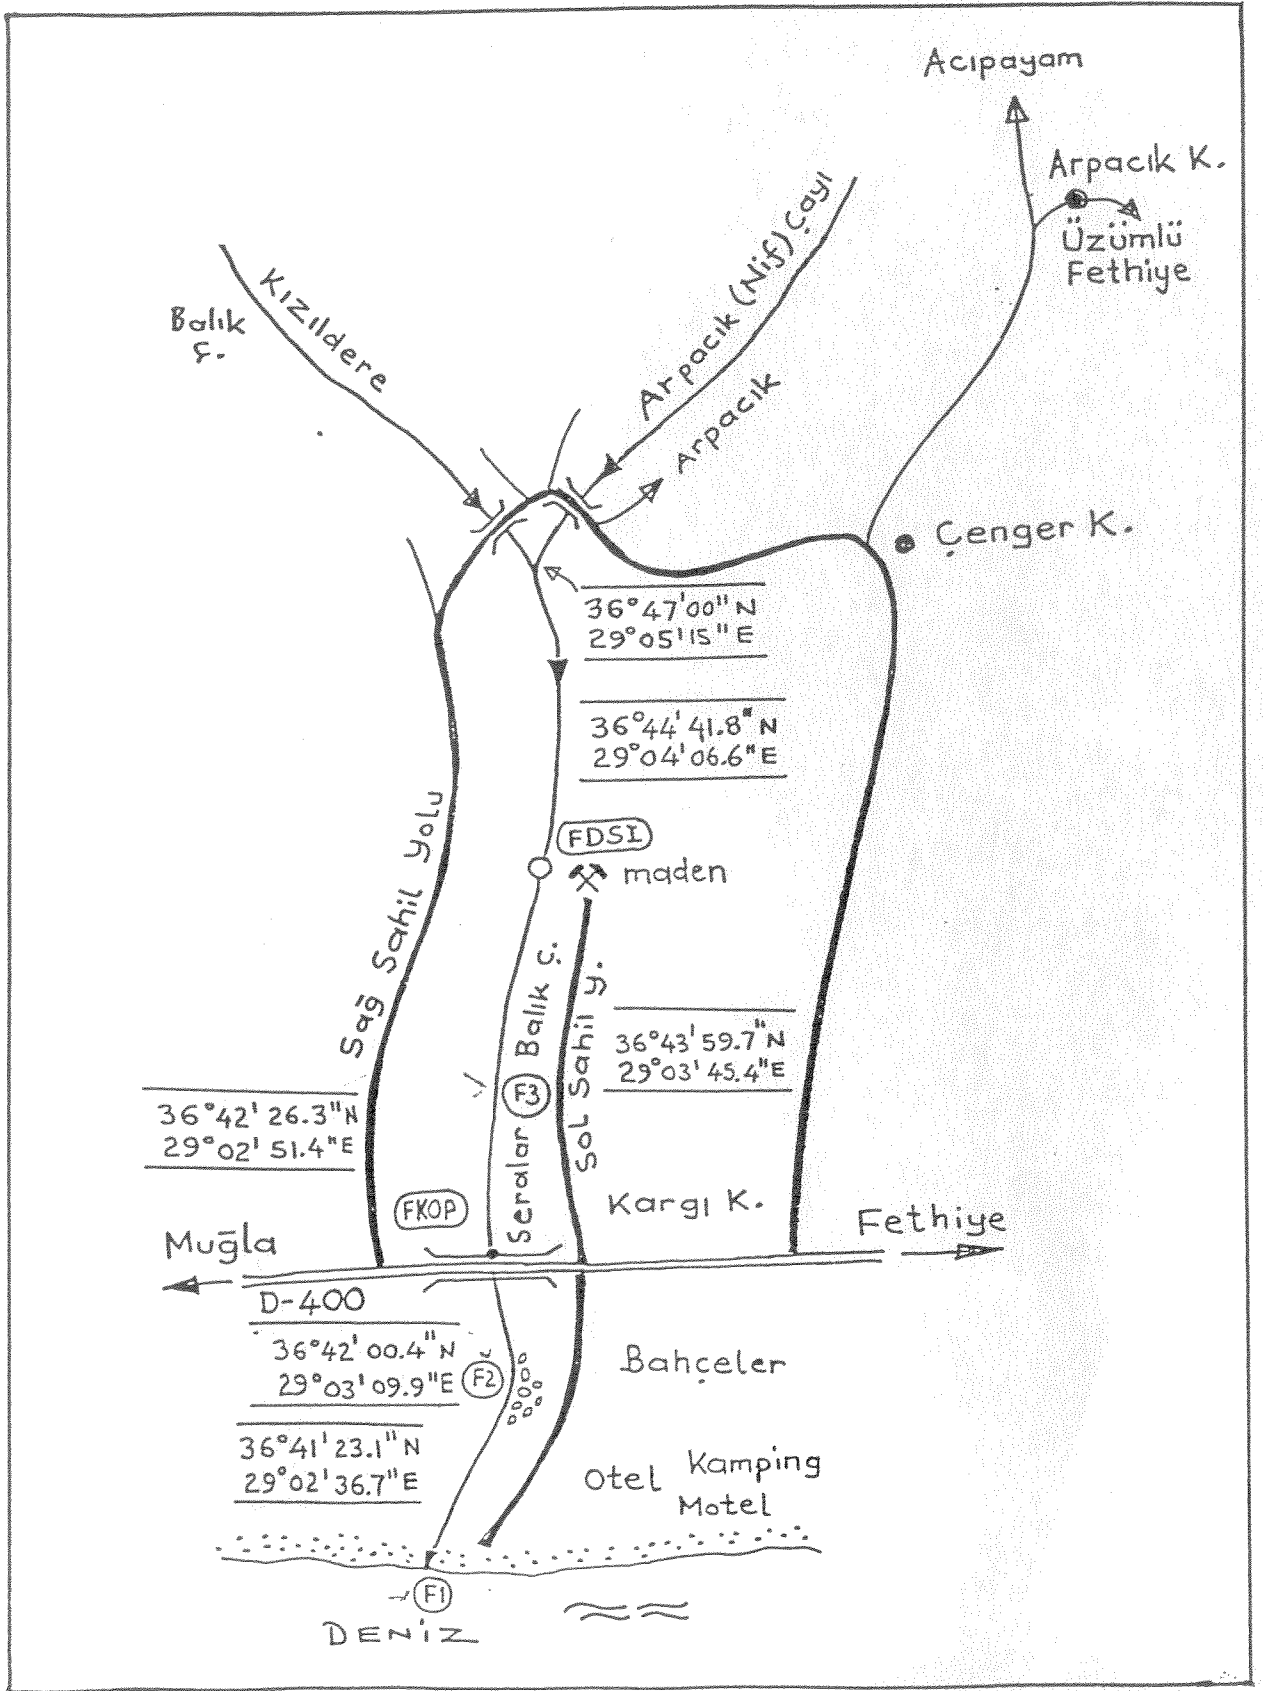 Acıpayam
Arpacık K.
Üzümlü
Fethiye
Arpacık (Nif) Çayı
Kızıldere
Balık
Ç.
Arpacık
Çenger K.
36°47'00" N
29°05'15" E
36°44' 41.8" N
29°04' 06.6" E
FDSI
maden
Sağ Sahil Yolu
Balık Ç.
Sol Sahil Y.
36°43' 59.7" N
29°03' 45.4" E
F3
Seralar
36°42' 26.3" N
29°02' 51.4" E
FKOP
Kargı K.
Muğla
Fethiye
D-400
36°42' 00.4" N
29°03' 09.9" E
F2
Bahçeler
36°41' 23.1" N
29°02' 36.7" E
Otel Kamping
Motel
F1
DENİZ